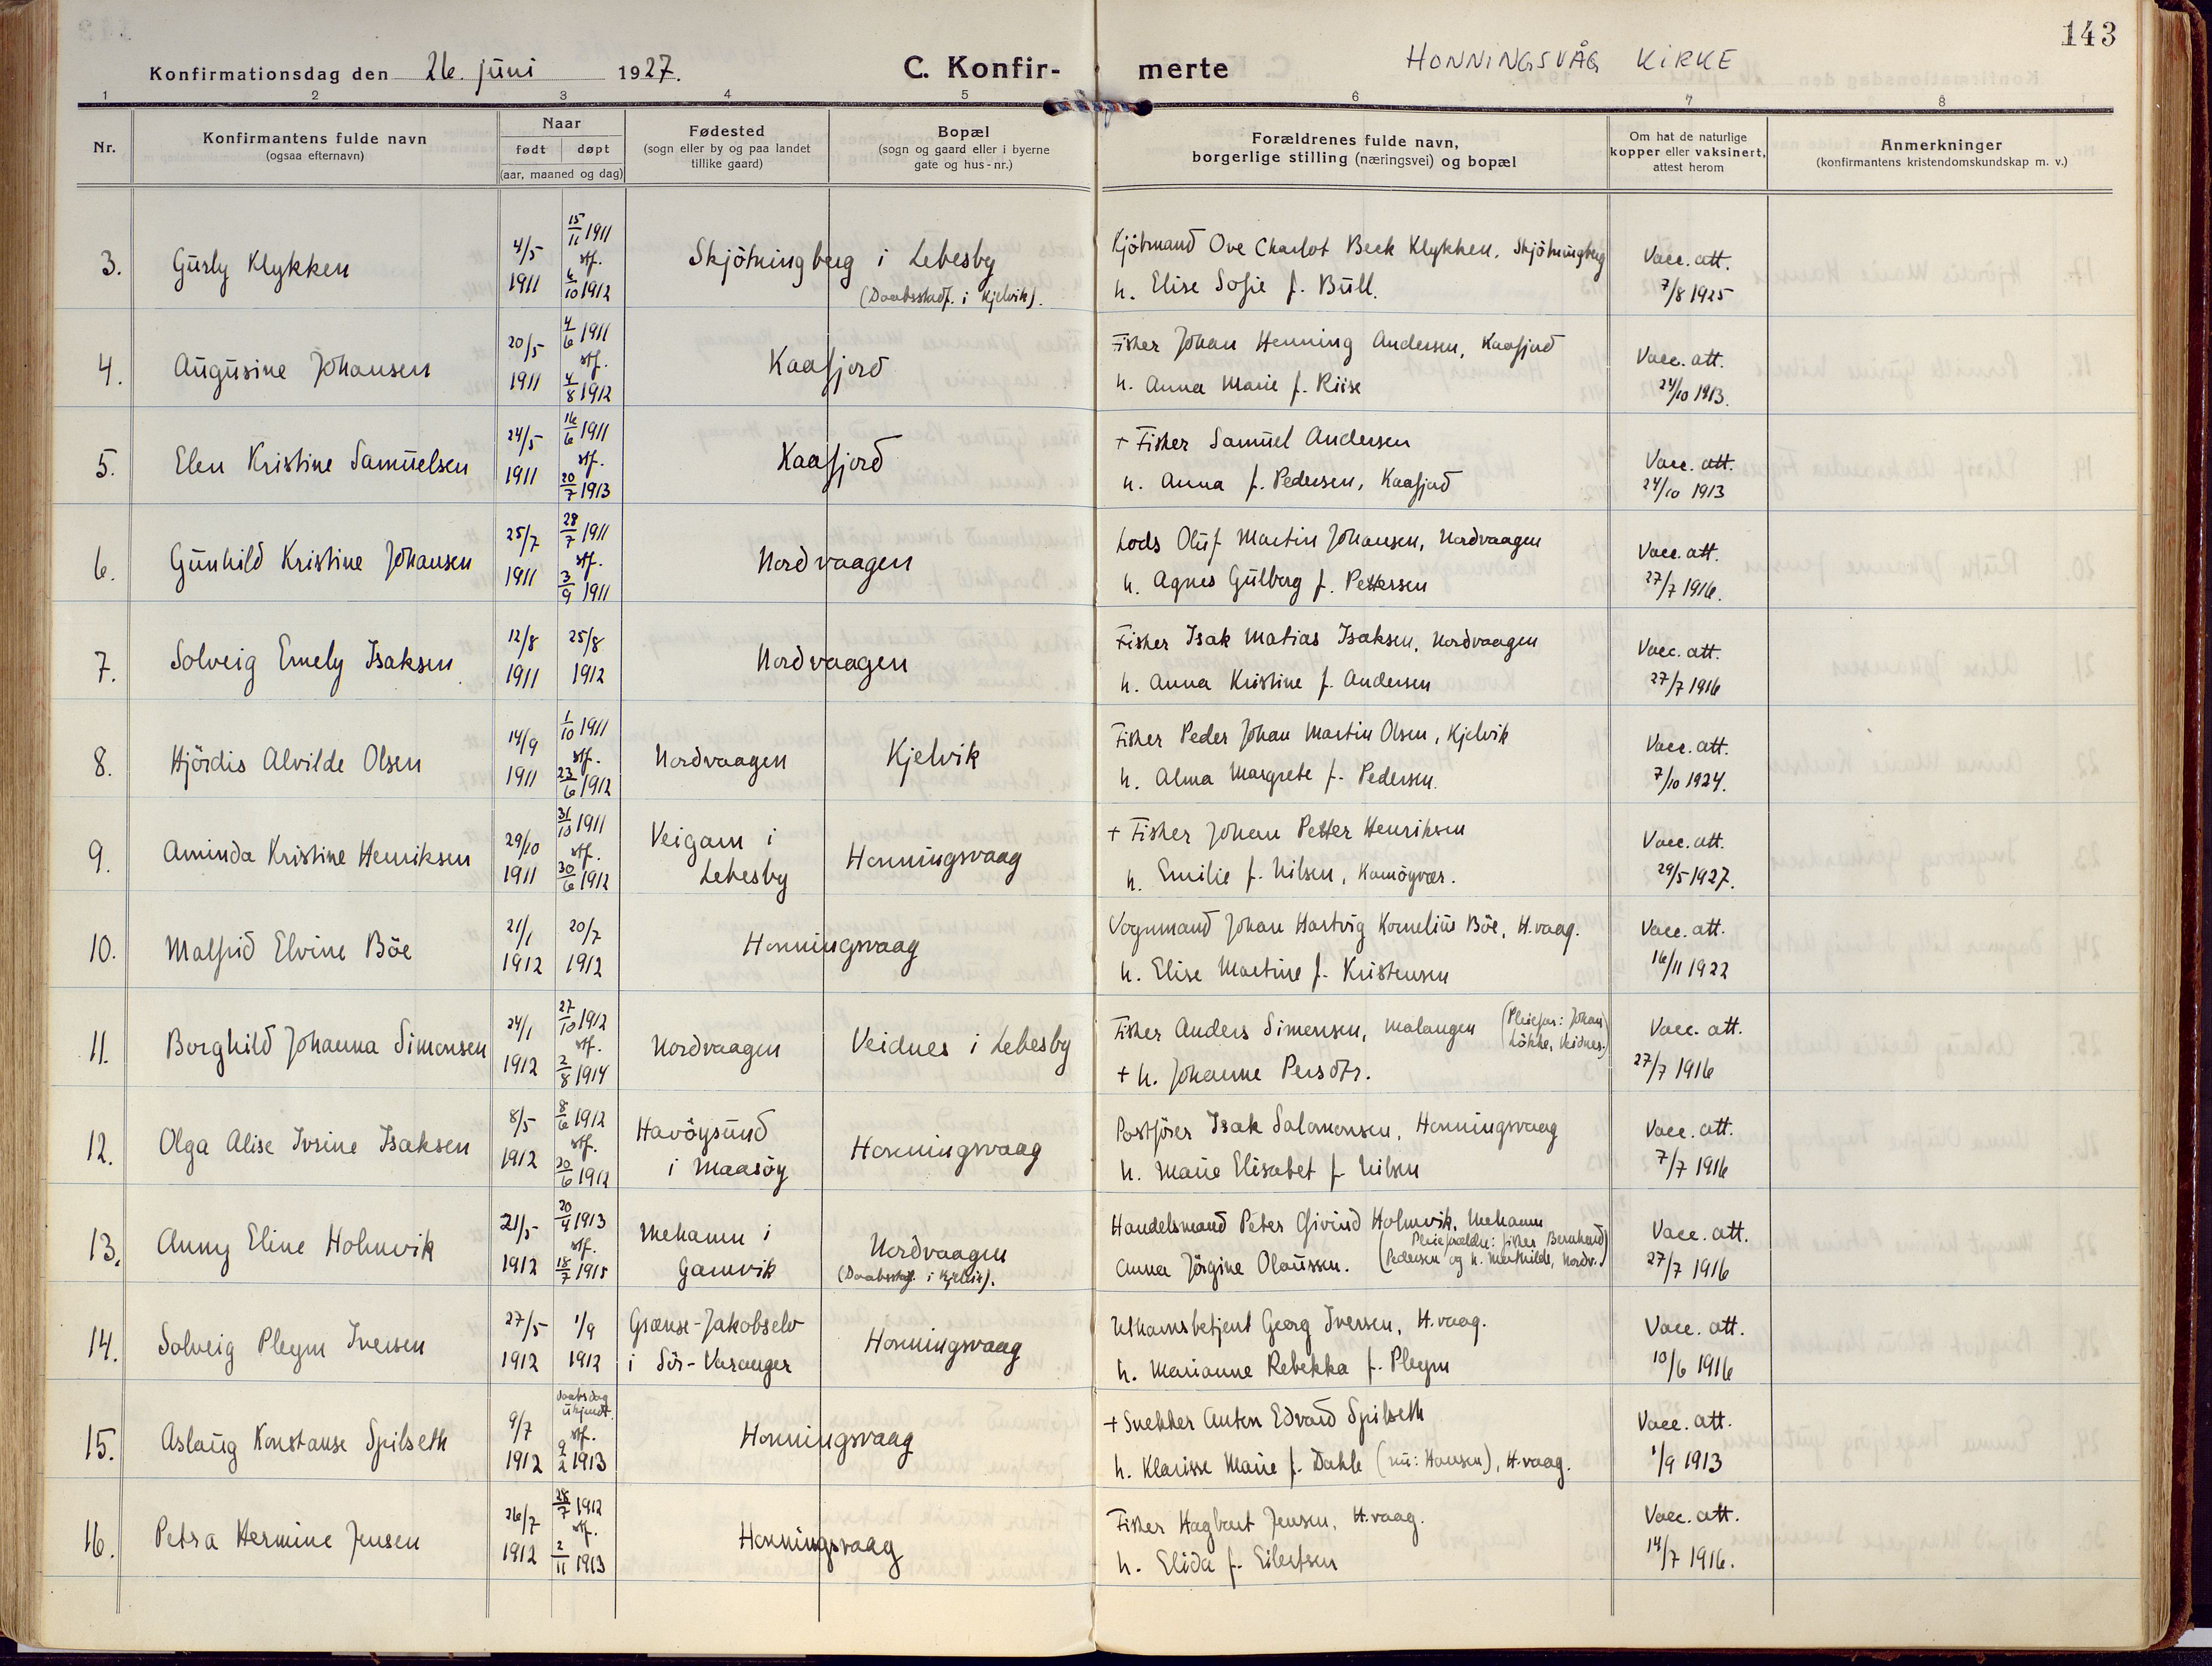 143
Konfirmationsdag den 26. juni 1927.
C. Konfir-
merte
HONNINGSVÅG KIRKE
1 2 3 4 5 6 7 8
Nr.
Konfirmantens fulde navn
(ogsaa efternavn)
Naar
født døpt
(aar, maaned og dag)
Fødested
(sogn eller by og paa landet
tillike gaard)
Bopæl
(sogn og gaard eller i byerne
gate og hus-nr.)
Forældrenes fulde navn,
borgerlige stilling (næringsvei) og bopæl
Om hat de naturlige
kopper eller vaksinert,
attest herom
Anmerkninger
(konfirmantens kristendomskundskap m. v.)
3. Gurly Klykken
4/5 1911
15/11 1911
stf.
6/10 1912
Skjötningberg i Lebesby
(Daabsstadf. i Kjelvik).
Kjöbmand Ove Charlot Beck Klykken, Skjötningberg
h. Elise Sofie f. Büll.
Vacc. att.
7/8 1925
4. Augusine Johansen
20/5 1911
4/6 1911
stf.
4/8 1912
Kaafjord
Fisker Johan Henning Andersen, Kaafjord
h. Anna Marie f. Riise
Vacc. att.
24/10 1913.
5. Elen Kristine Samuelsen
24/5 1911
16/6 1911
stf.
20/7 1913
Kaafjord
+ Fisker Samuel Andersen
h. Anna f. Pedersen, Kaafjord
Vacc. att.
24/10 1913
6. Gunhild Kristine Johansen
25/7 1911
28/7 1911
stf.
3/9 1911
Nordvaagen
Lods Oluf Martin Johansen, Nordvaagen
h. Agnes Gulborg f. Pettersen
Vacc. att.
27/7 1916.
7. Solveig Emely Isaksen
12/8 1911
25/8 1912
Nordvaagen
Fisker Isak Matias Isaksen, Nordvaagen
h. Anna Kristine f. Andersen
Vacc. att.
27/7 1916
8. Hjördis Alvilde Olsen
14/9 1911
1/10 1911
stf.
23/6 1912
Nordvaagen
Kjelvik
Fisker Peder Johan Martin Olsen, Kjelvik
h. Alma Margrete f. Pedersen.
Vacc. att.
7/10 1924.
9. Aminda Kristine Henriksen
29/10 1911
31/10 1911
stf.
30/6 1912
Veigam i
Lebesby
Honningsvaag
+ Fisker Johan Petter Henriksen
h. Emilie f. Nilsen, Kamöyvær.
Vacc. att.
29/5 1927.
10. Malfrid Elvine Böe
21/1 1912
20/7 1912
Honningsvaag
Vognmand Johan Hartvig Kornelius Böe, H.vaag.
h. Elise Martine f. Kristensen
Vacc. att.
16/11 1922
11. Borghild Johanna Simonsen
24/1 1912
27/10 1912
stf.
2/8 1914
Nordvaagen
Veidnes i Lebesby
Fisker Anders Simonsen, Malangen (Pleiefar: Johan
Lökke, Veidnes.)
+ h. Johanne Persdtr.
Vacc. att.
27/7 1916
12. Olga Alise Ivrine Isaksen
8/5 1912
8/6 1912
stf.
20/6 1912
Havöysund
i Maasöy
Honningsvaag
Postförer Isak Salamonsen, Honningsvaag
h. Marie Elisabet f. Nilsen
Vacc. att.
7/7 1916
13. Anny Eline Holmvik
21/5 1912
20/4 1913
stf.
18/7 1915
Mehamn i
Gamvik
Nordvaagen
(Daabsstadf. i Kjelvik).
Handelsmand Peter Eivind Holmvik, Mehamn
(Pleieforeldre: fisker Bernhard
Anna Jörgine Olaussen. Pedersen og h. Mathilde, Nordv.)
Vacc. att.
27/7 1916
14. Solveig Pleym Iversen
27/5 1912
1/9 1912
Grænse-Jakobselv
i Sör-Varanger
Honningsvaag
Uthavnsbetjent Georg Iversen, H.vaag.
h. Marianne Rebekka f. Pleym
Vacc. att.
10/6 1916
15. Aslaug Konstanse Spilseth
9/7 1912
daabsdag
ukjendt.
stf.
9/2 1913
Honningsvaag
+ Snekker Anton Edvard Spilseth
h. Klarisse Marie f. Dahle (nu: Hansen), H.vaag.
Vacc. att.
1/9 1913
16. Petra Hermine Jensen
26/7 1912
28/7 1912
stf.
2/11 1913
Honningsvaag
Fisker Hagbart Jensen, H.vaag.
h. Elida f. Eilertsen
Vacc. att.
14/7 1916.